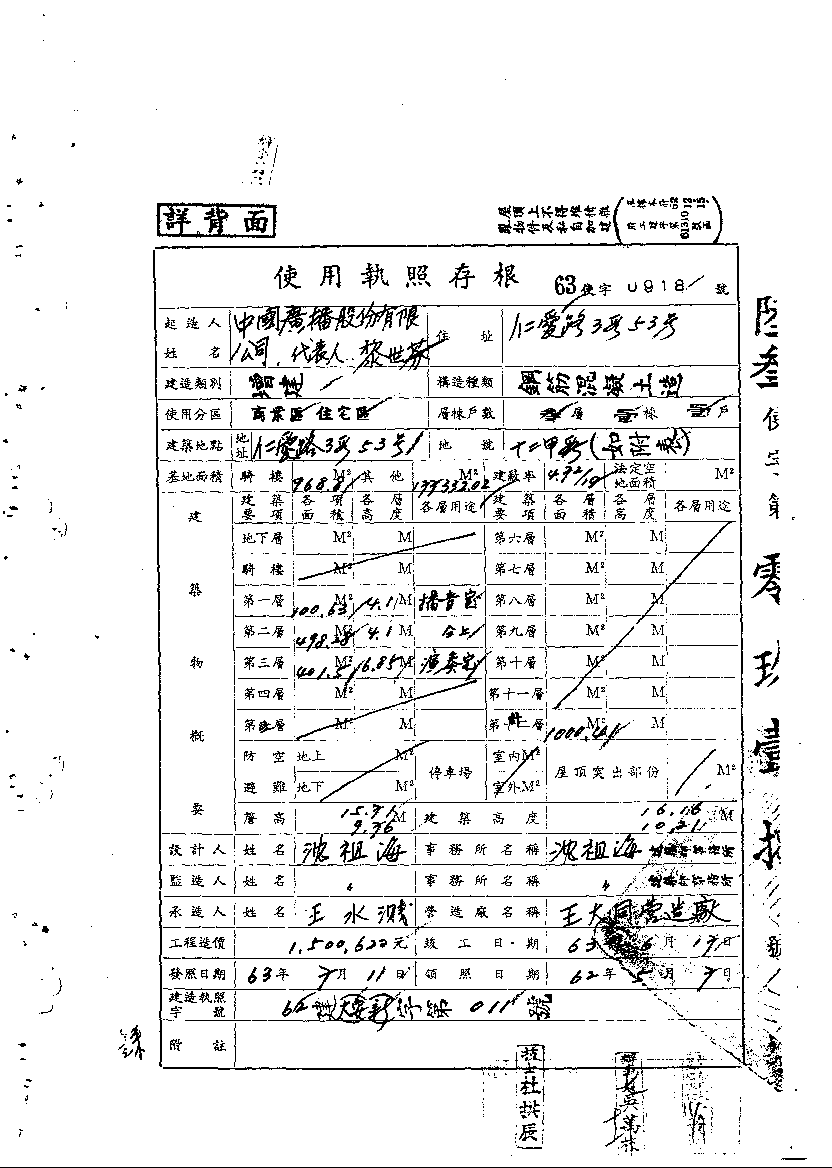 詳背面
屋頂上不得堆積雜
物件及私自加建
使用執照存根 63使字0918號
起造人姓名 中國廣播股份有限公司 代表人 黎世芬 住址 仁愛路3段53号
建造類別 增建 構造種類 鋼筋混凝土造
使用分區 商業區住宅區 層棟戶數 叁層 壹棟 壹戶
建築地點 地址 仁愛路3段53号 地號 十二甲段(如附表)
基地面積 騎樓 968.8 M² 其他 M² 建蔽率 法定空地面積 M²
建築物概要 建築要項 各項面積 各層高度 各層用途 建築要項 各層面積 各層高度 各層用途
地下層 M² M 第六層 M² M
騎樓 M² M 第七層 M² M
第一層 100.63 M² 4.1 M 播音室 第八層 M² M
第二層 498.28 M² 4.1 M 仝上 第九層 M² M
第三層 401.5 M² 6.85 M 演奏室 第十層 M² M
第四層 M² M 第十一層 M² M
層 M² M 計 1000.41 M²
防空避難 地上 M² 停車場 室內M² 屋頂突出部份 M²
地下 M² 室外M²
簷高 15.31 M 建築高度 16.16 M
9.36 10.21
設計人 姓名 沈祖海 事務所名稱 沈祖海建築師事務所
監造人 姓名 〃 事務所名稱 〃 建築師事務所
承造人 姓名 王水 營造廠名稱 王大同營造廠
工程造價 1,500,622元 竣工日期 63 6月17日
發照日期 63年7月11日 領照日期 62年5月7日
建造執照字號 62建大安 字第011號
附註
技士杜拱辰
陸叁使字第零玖壹捌號